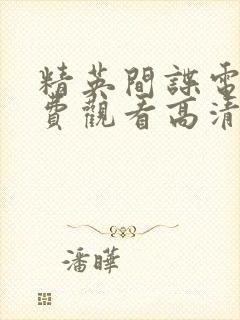 精英間諜電
費觀看高清
潘曄